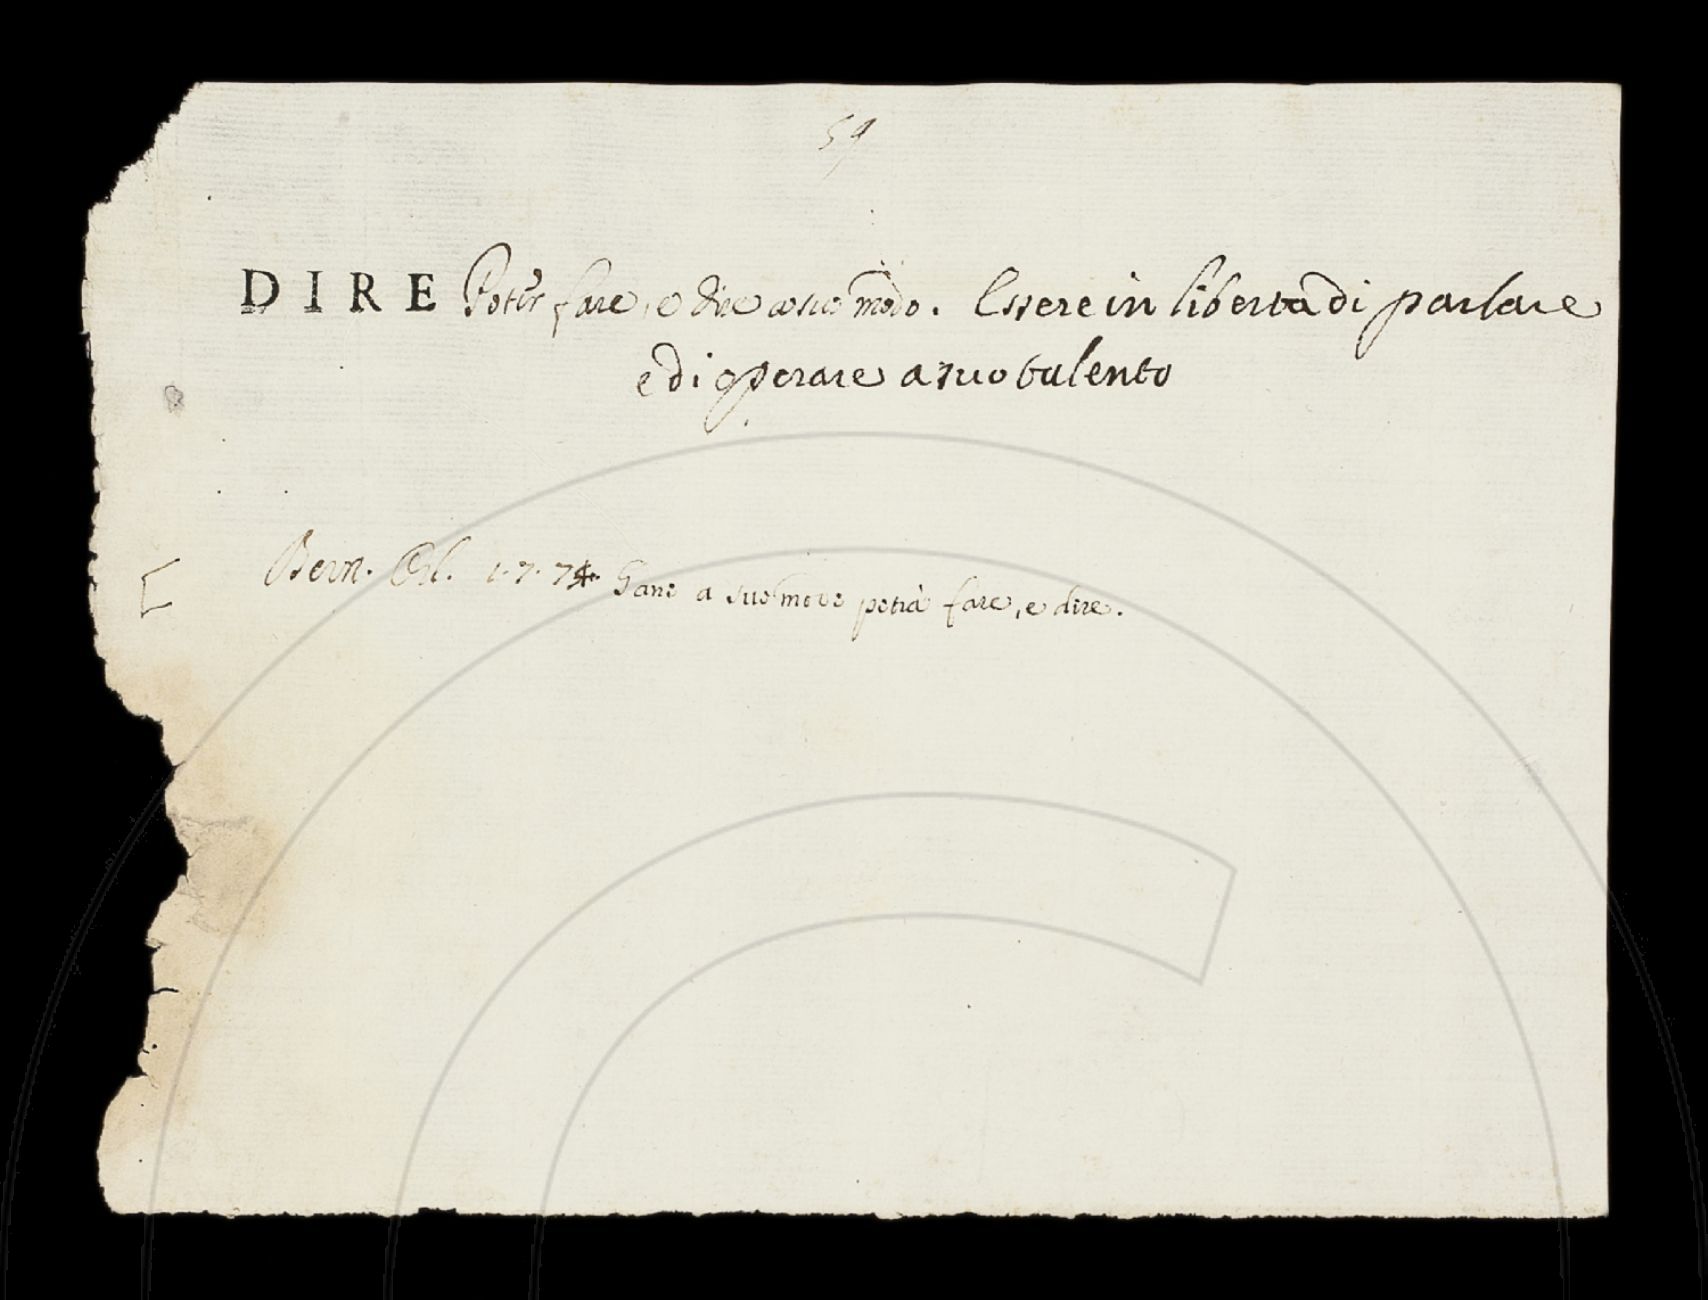 59
DIRE Poter fare, e dire a suo modo. Essere in libertà di parlare
e di operare a suo talento
Bern. Orl. 1. 7. 74. Gano a suo modo potrà fare, e dire.